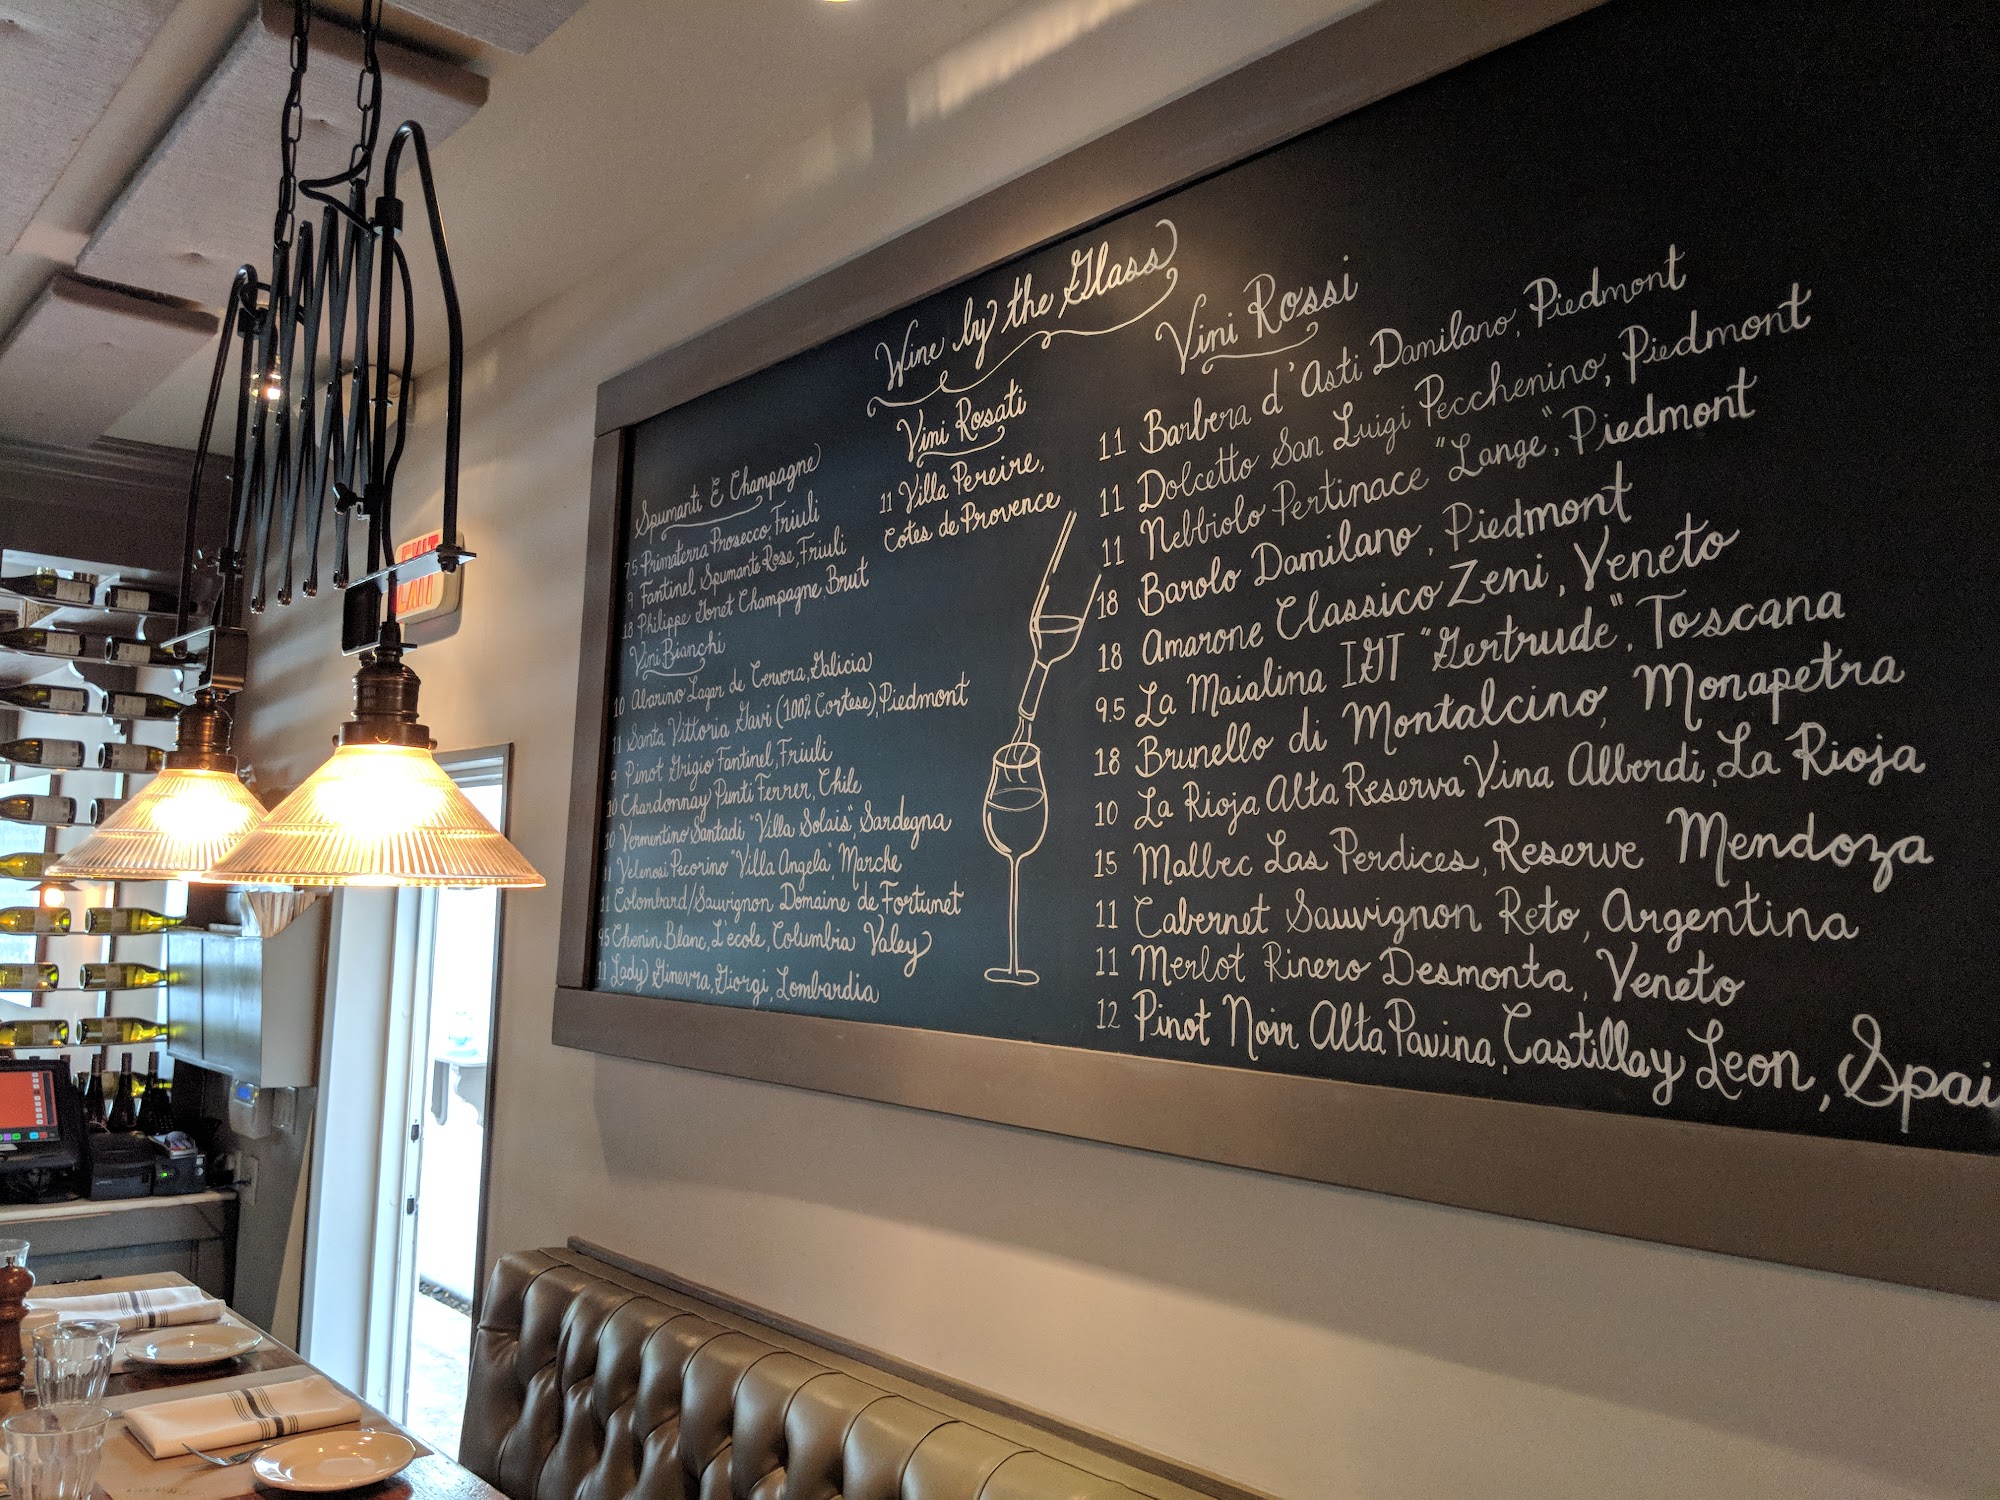 Wine by the Glass
Spumanti E Champagne
7.5 Primaterra Prosecco, Friuli
9 Fantinel Spumante Rose, Friuli
18 Philippe Gonet Champagne, Brut
Vini Bianchi
10 Abarino Lagar de Cervera, Galicia
11 Santa Vittoria Gavi (100% Cortese), Piedmont
9 Pinot Grigio Fantinel, Friuli
10 Chardonnay Punti Ferrer, Chile
10 Vermentino Santadi "Villa Solais" Sardegna
11 Velenosi Pecorino "Villa Angela", Marche
11 Colombard/Sauvignon Domaine de Fortunet
9.5 Chenin Blanc, L'école, Columbia Valey
11 Lady Ginevra, Giorgi, Lombardia
Vini Rosati
11 Villa Pereire,
Cotes de Provence
Vini Rossi
11 Barbera d'Asti Damilano, Piedmont
11 Dolcetto San Luigi Pecchenino, Piedmont
11 Nebbiolo Pertinace "Lange", Piedmont
18 Barolo Damilano, Piedmont
18 Amarone Classico Zeni, Veneto
9.5 La Maialina IGT "Gertrude", Toscana
18 Brunello di Montalcino, Monapetra
10 La Rioja Alta Reserva Vina Alberdi, La Rioja
15 Malbec Las Perdices, Reserve Mendoza
11 Cabernet Sauvignon Reto, Argentina
11 Merlot Rinero Desmonta, Veneto
12 Pinot Noir Alta Pavina, Castillay Leon, Spai
EXIT